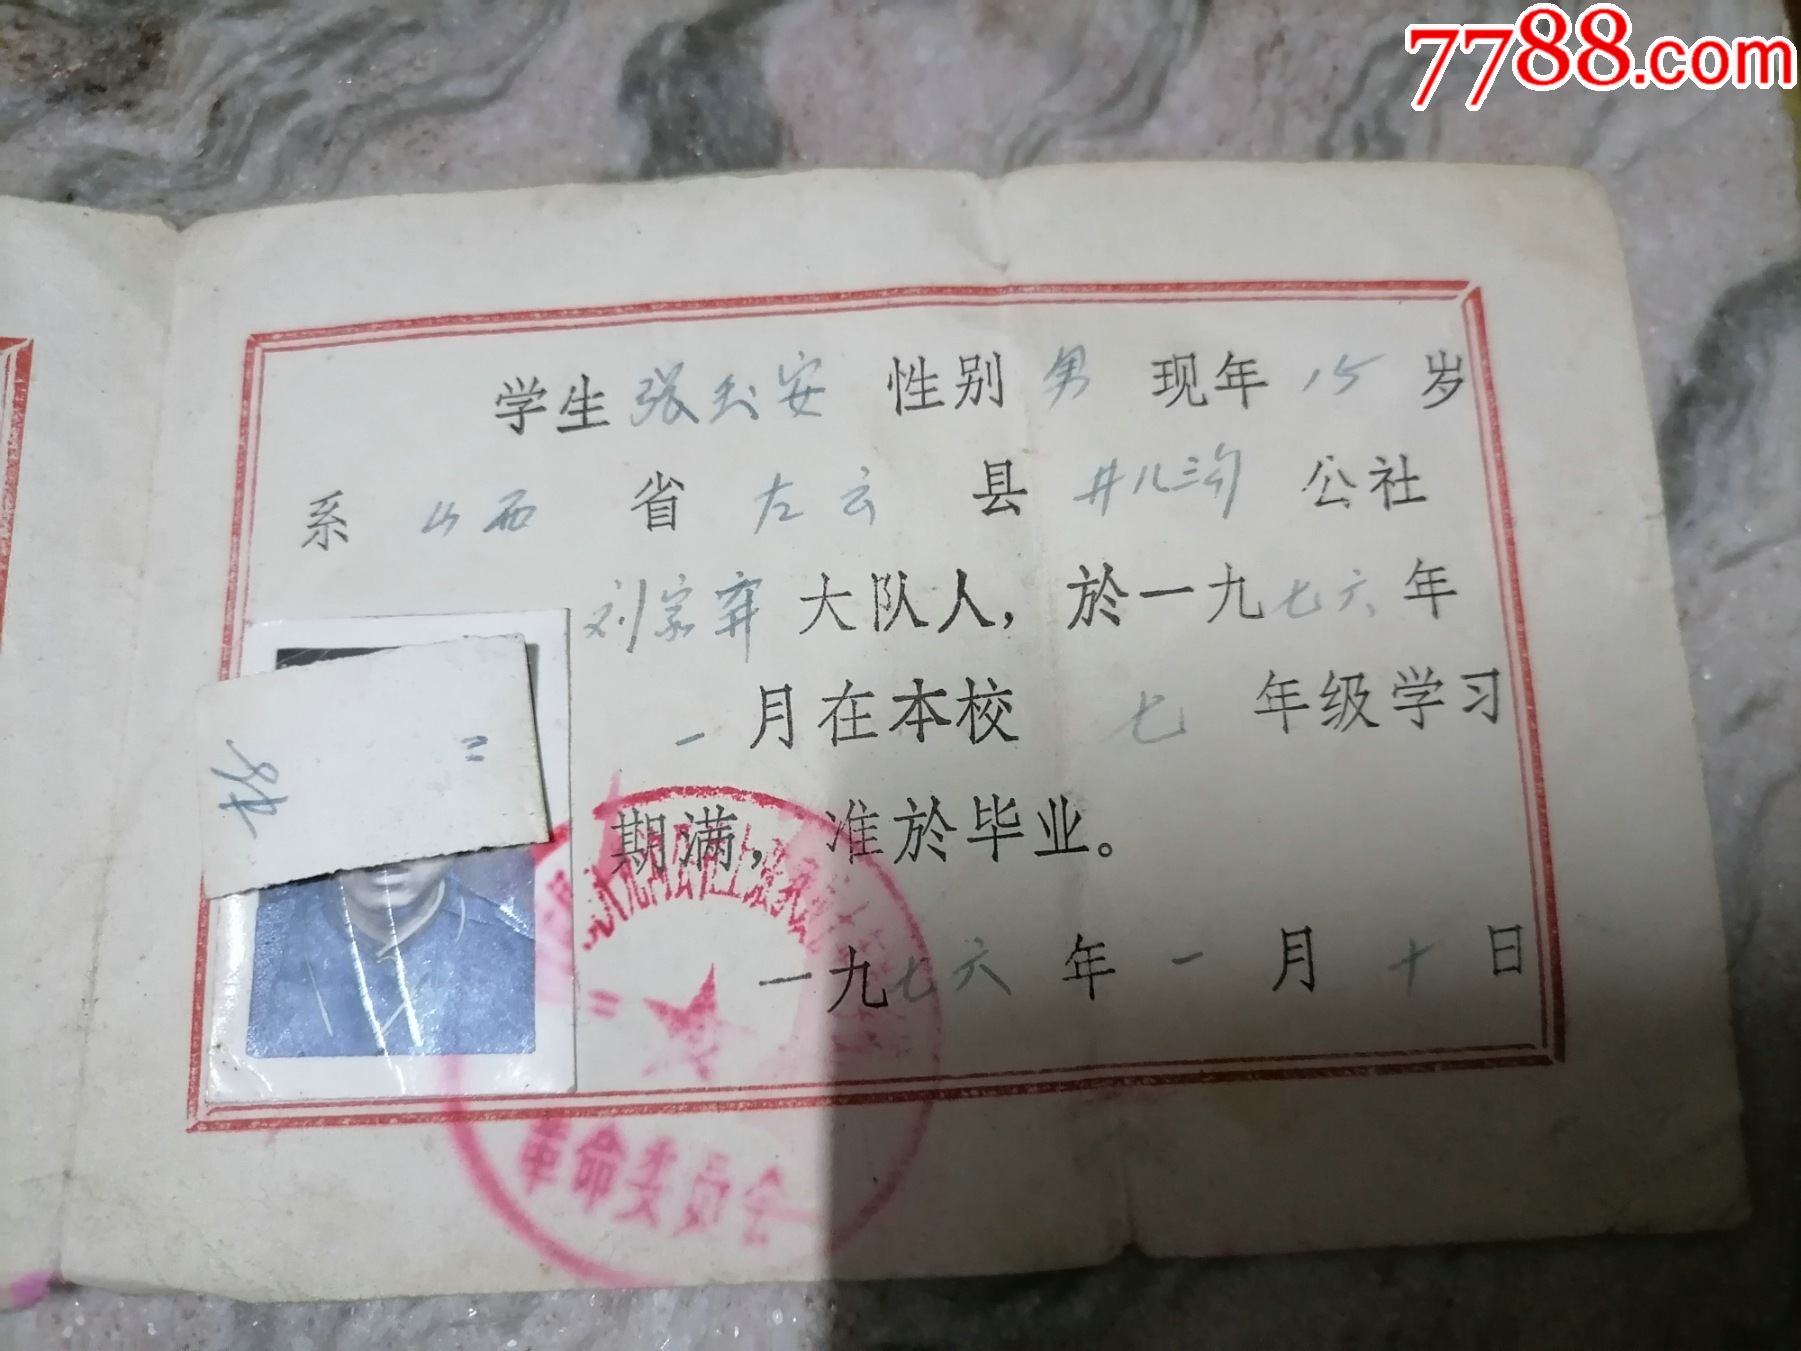 7788.com
学生张玉安 性别 男 现年 15 岁
系 山西 省 左云 县 井儿沟 公社
刘家窑 大队人，於一九七六年
一 月在本校 七 年级学习
期满，准於毕业。
一九七六 年 一 月 十 日
二
革命委员会